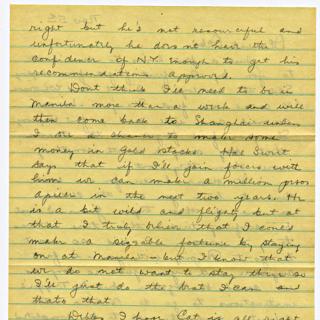 right but he's not resourceful and
unfortunately he does not have the
confidence of N.Y. enough to get his
recommendations approved.
Dont think I'll need to be in
Manila more than a week and will
then come back to Shanghai unless
I see a chance to make some
money in Gold Stocks. Hal
says that if I'll join forces with
him we can make a million pesos
apiece in the next two years. He
is a bit wild and flighty but at
that I truly believe that I could
make a sizeable fortune by staying
on at Manila - but I know that
we do not want to stay there so
I'll just do the best I can and
thats that
I hope Cat is all right